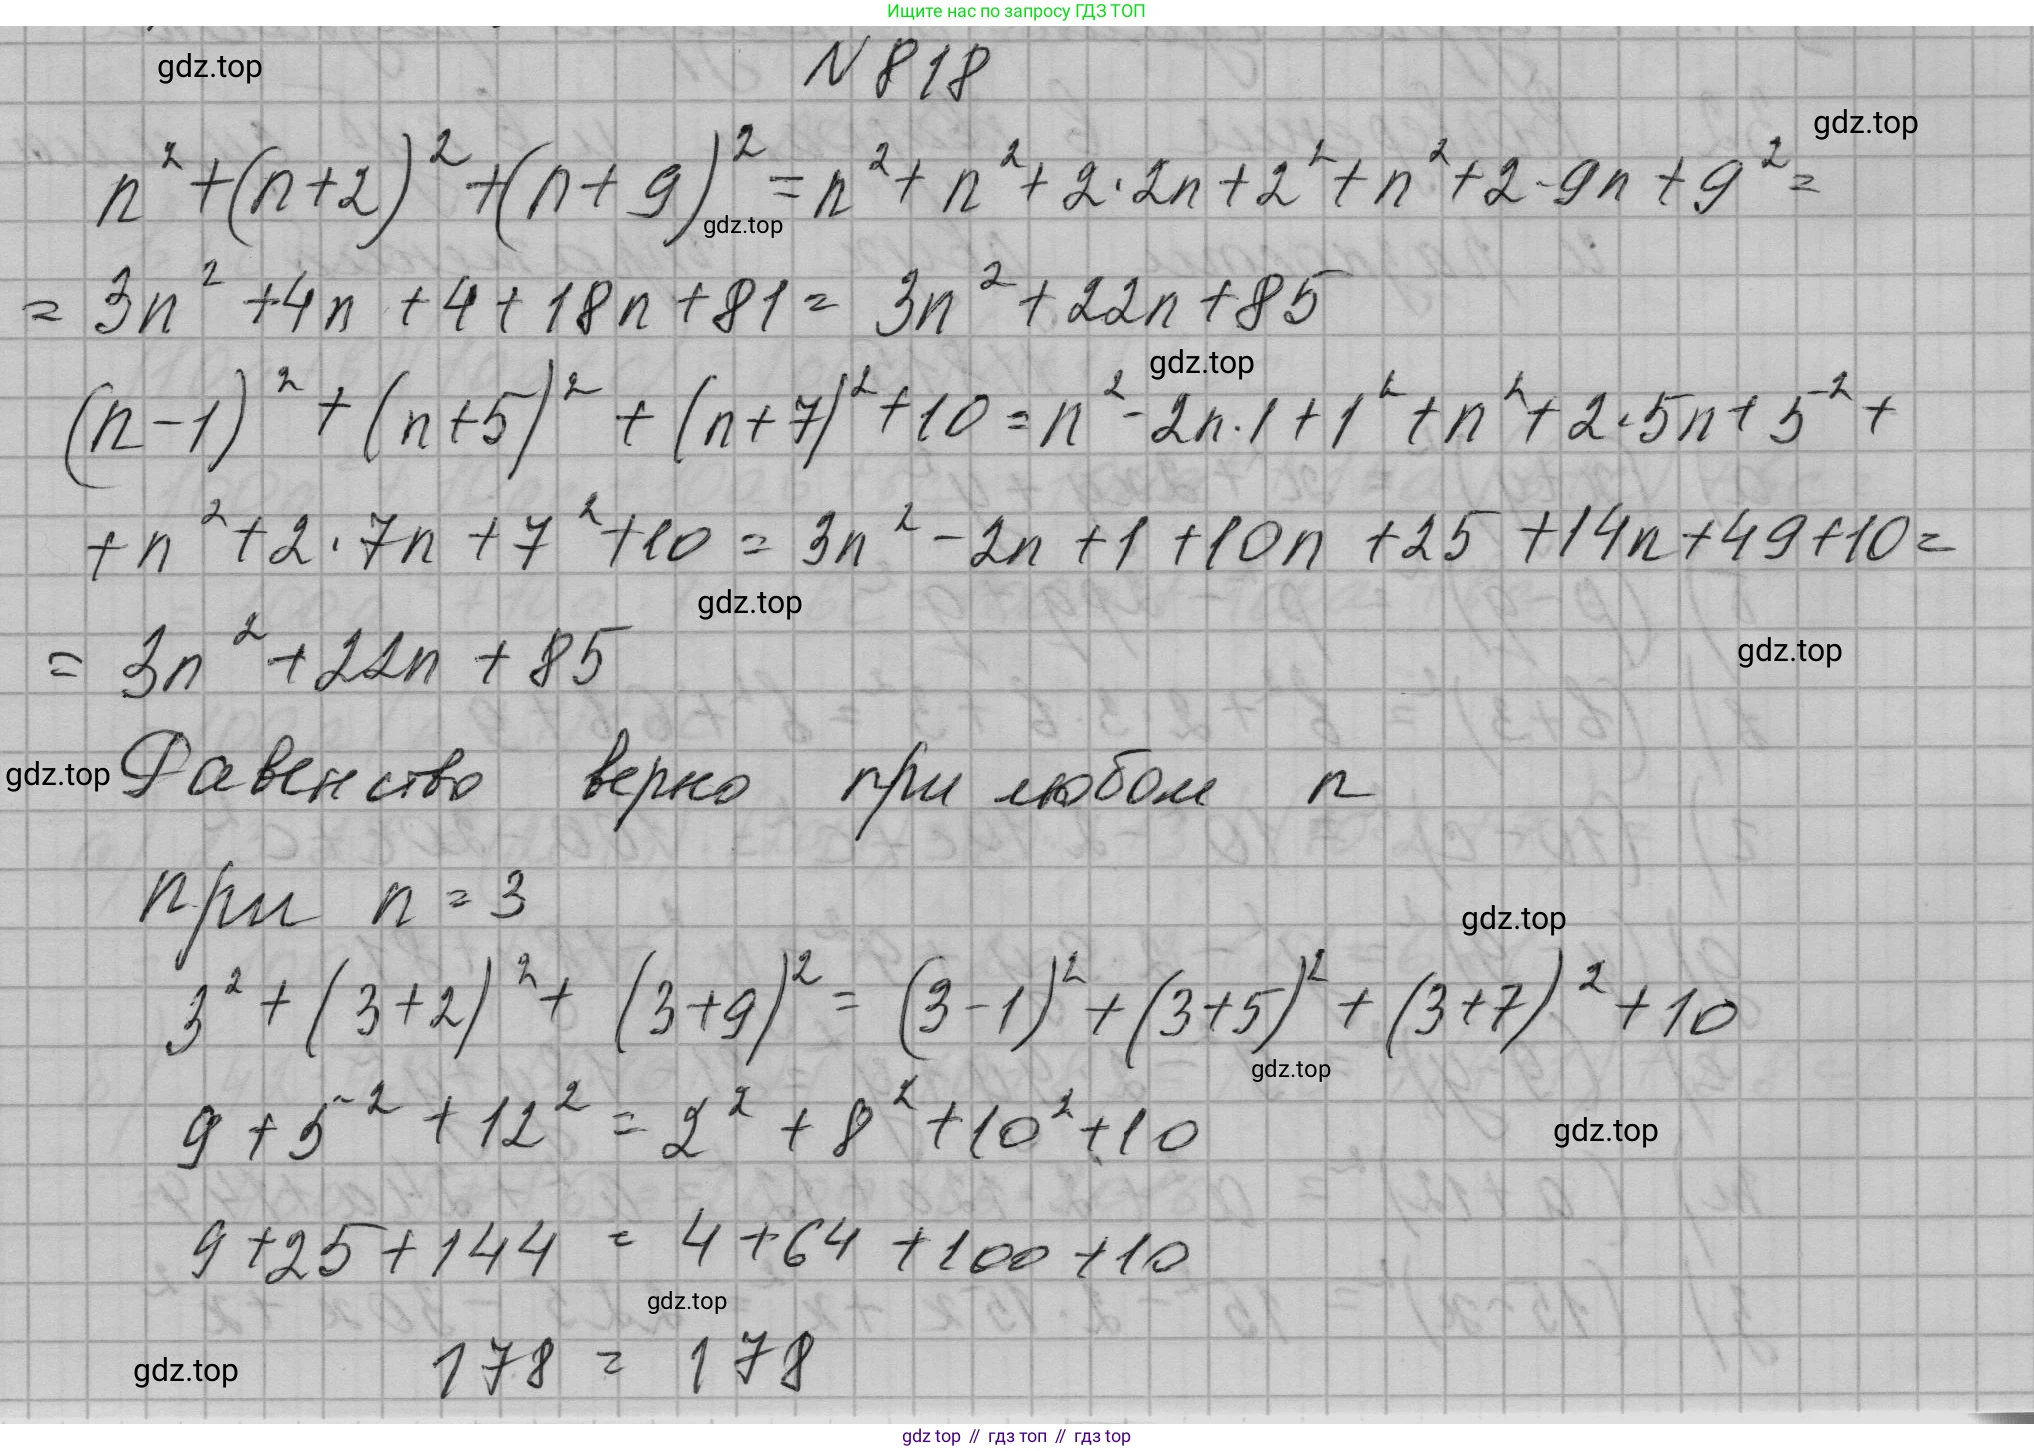 Ищите нас по запросу ГДЗ ТОП
gdz.top
N 818
gdz.top
n² + (n+2)² + (n+9)² = n² + n² + 2·2n + 2² + n² + 2·9n + 9² =
gdz.top
= 3n² + 4n + 4 + 18n + 81 = 3n² + 22n + 85
gdz.top
(n-1)² + (n+5)² + (n+7)² + 10 = n² - 2n·1 + 1² + n² + 2·5n + 5² +
+ n² + 2·7n + 7² + 10 = 3n² - 2n + 1 + 10n + 25 + 14n + 49 + 10 =
gdz.top
= 3n² + 22n + 85
gdz.top
gdz.top
Равенство верно при любом n
при n = 3
gdz.top
3² + (3+2)² + (3+9)² = (3-1)² + (3+5)² + (3+7)² + 10
gdz.top
9 + 5² + 12² = 2² + 8² + 10² + 10
gdz.top
9 + 25 + 144 = 4 + 64 + 100 + 10
gdz.top
178 = 178
gdz.top
gdz top // гдз топ // гдз top